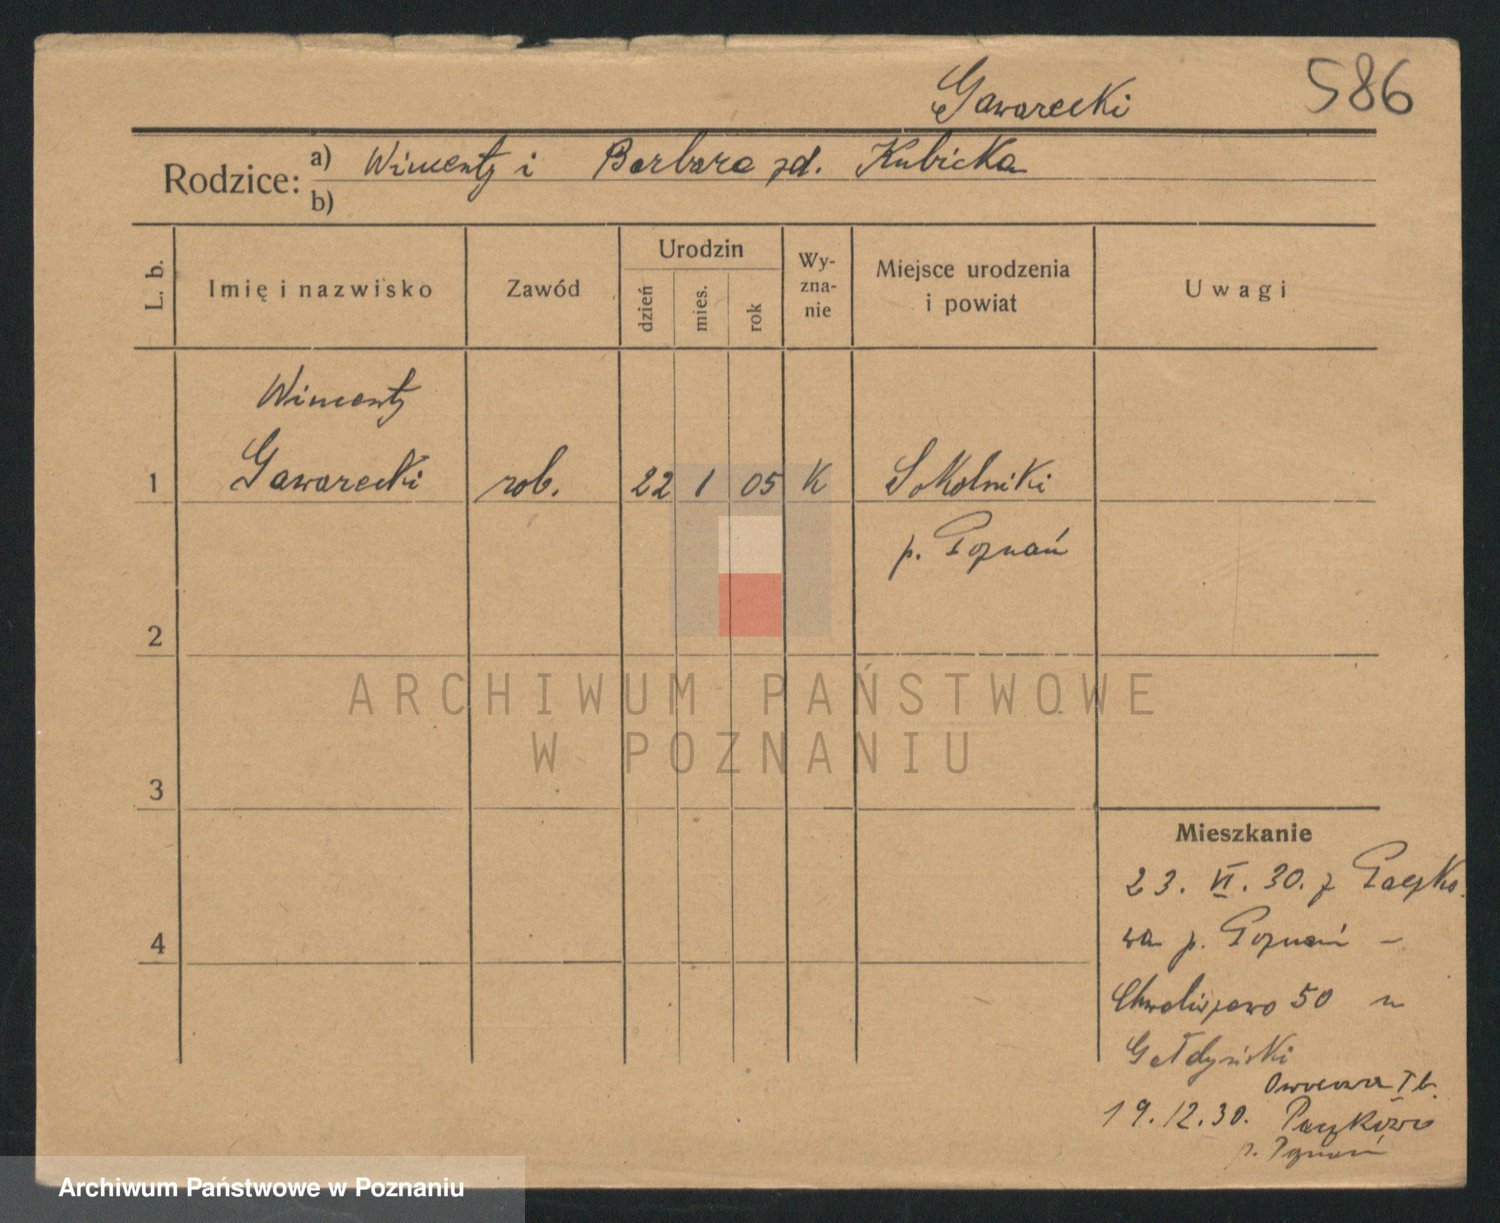 Gawarecki
586
Rodzice:
a) Wincenty i Barbara zd. Kubicka
b)
L. b.
Imię i nazwisko
Zawód
Urodzin
dzień
mies.
rok
Wy-
zna-
nie
Miejsce urodzenia
i powiat
Uwagi
Wincenty
1 Gawarecki rob. 22 1 05 K Sokolniki
p. Poznań
2
3
4
Mieszkanie
23. VI. 30. z Paczko-
wa p. Poznań –
Chwaliszewo 50 u
Gałdyński
19.12.30. Paczkowo
p. Poznań
ARCHIWUM PAŃSTWOWE
W POZNANIU
Archiwum Państwowe w Poznaniu